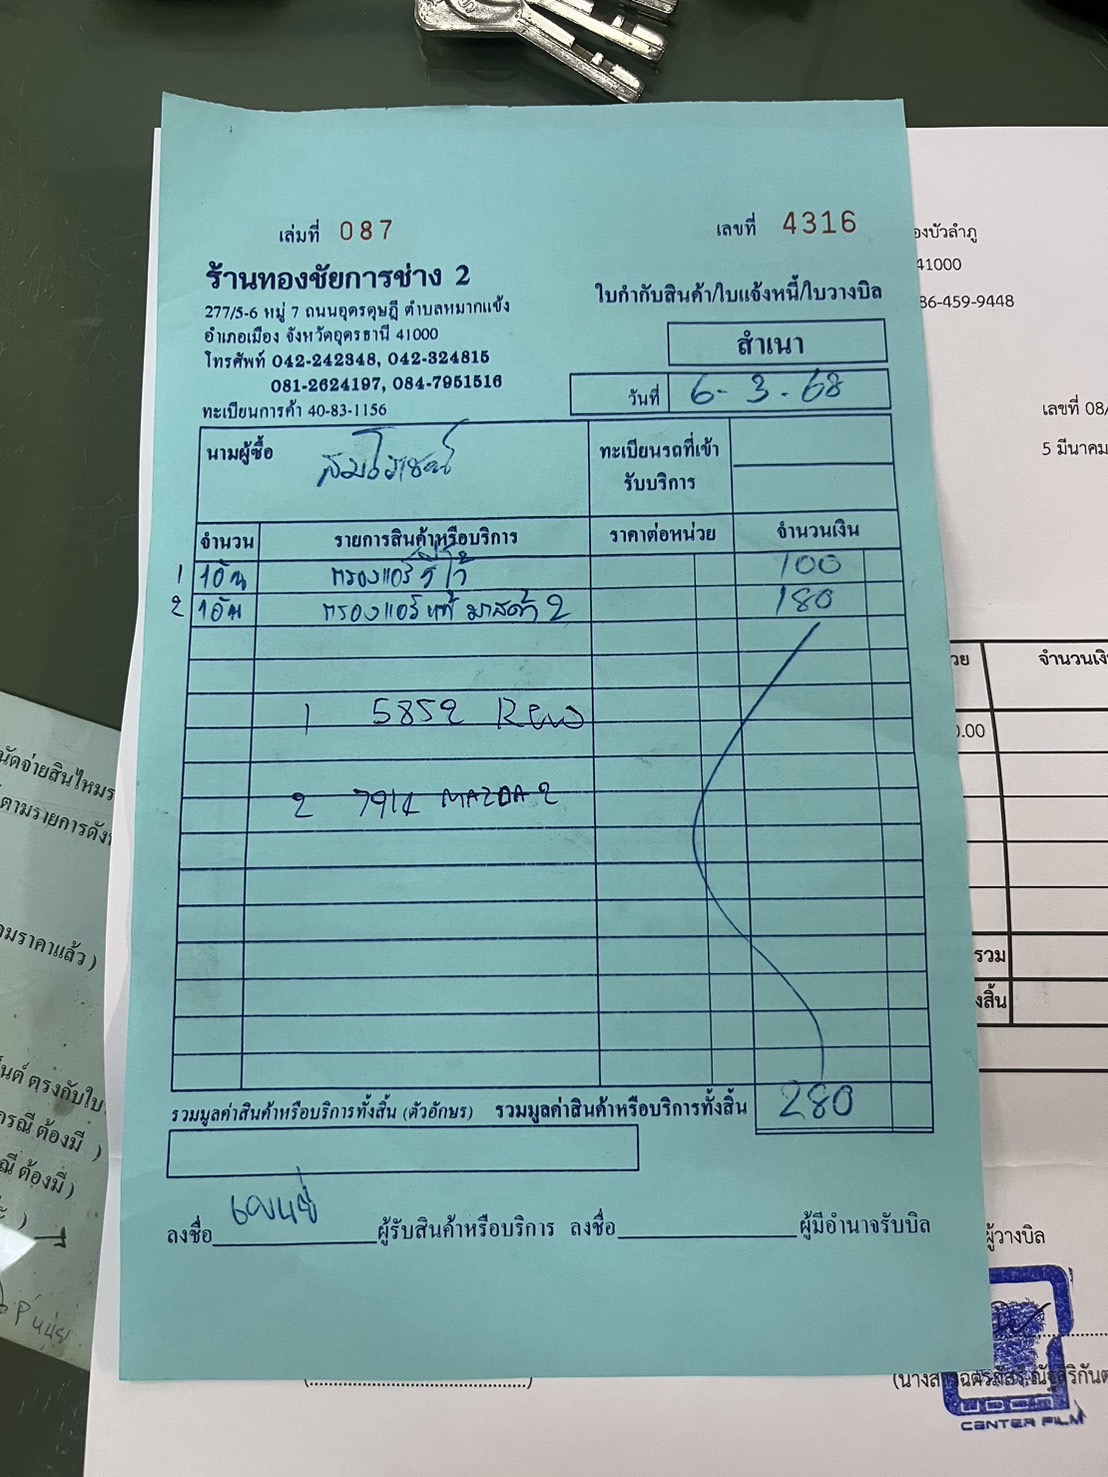 เล่มที่ 087
เลขที่ 4316
ร้านทองชัยการช่าง 2
277/5-6 หมู่ 7 ถนนอุดรดุษฎี ตำบลหมากแข้ง
อำเภอเมือง จังหวัดอุดรธานี 41000
โทรศัพท์ 042-242348, 042-324815
081-2624197, 084-7951516
ทะเบียนการค้า 40-83-1156
ใบกำกับสินค้า/ใบแจ้งหนี้/ใบวางบิล
สำเนา
วันที่ 6-3-68
นามผู้ซื้อ
ทะเบียนรถที่เข้า
รับบริการ
จำนวน รายการสินค้าหรือบริการ ราคาต่อหน่วย จำนวนเงิน
1 1อัน กรองแอร์ รีโว้ 100
2 1อัน กรองแอร์แท้ มาสด้า 2 180
1 5852 Revo
2 MAZDA 2
รวมมูลค่าสินค้าหรือบริการทั้งสิ้น (ตัวอักษร) รวมมูลค่าสินค้าหรือบริการทั้งสิ้น 280
ลงชื่อ ผู้รับสินค้าหรือบริการ ลงชื่อ ผู้มีอำนาจรับบิล
องบัวลำภู
41000
86-459-9448
เลขที่ 08/
5 มีนาคม
วย จำนวนเงิ
0.00
รวม
งสิ้น
ผู้วางบิล
CENTER FILM
นัดจ่ายสินไหมร
ตามรายการดัง
ามราคาแล้ว )
ันต์ ตรงกับใบ
กรณี ต้องมี )
ณี ต้องมี)